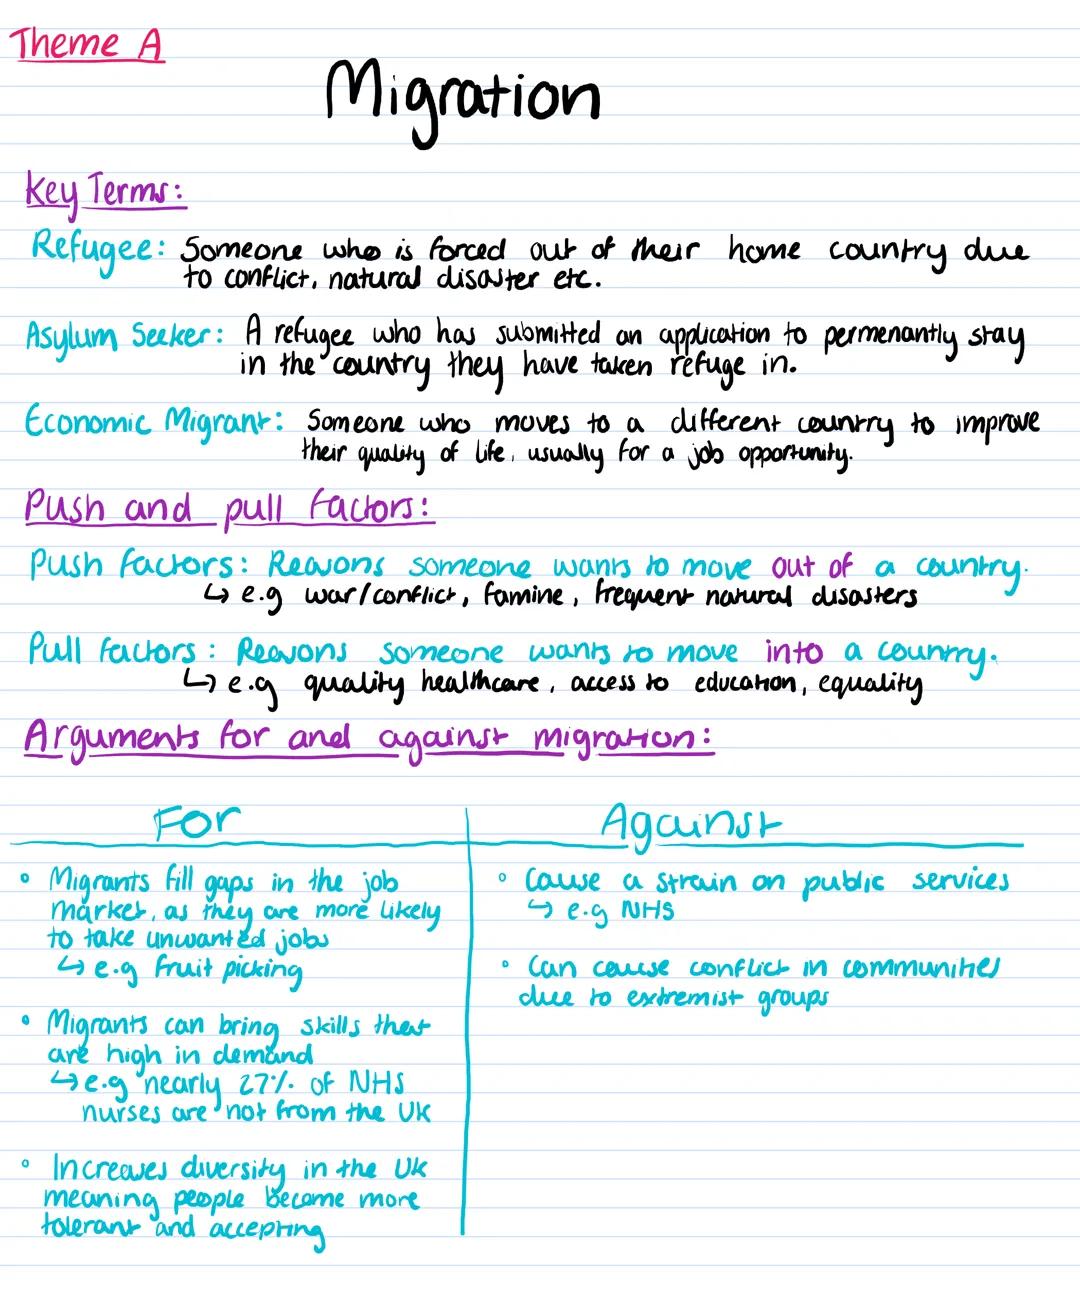 Theme A
Migration
Key Terms:
Refugee: Someone who is forced out of their home country due
to conflict, natural disaster etc.
Asylum Seeker: A refugee who has submitted an application to permenantly stay
in the country they have taken refuge in.
Economic Migrant: Someone who moves to a different country to improve
their quality of life, usually for a job opportunity.
Push and pull factors:
Push factors: Reasons someone wants to move out of a country.
↳ e.g war/conflict, famine, frequent natural disasters
Pull factors: Reasons someone wants to move into a country.
↳ e.g quality healthcare, access to education, equality
Arguments for and against migration:
For
• Migrants fill gaps in the job
market, as they are more likely
to take unwanted jobs
↳ e.g fruit picking
• Migrants can bring skills that
are high in demand
↳ e.g nearly 27% of NHS
nurses are not from the UK
• Increases diversity in the UK
meaning people become more
tolerant and accepting
Against
• Cause a strain on public services
↳ e.g NHS
• Can cause conflict in communities
due to extremist groups